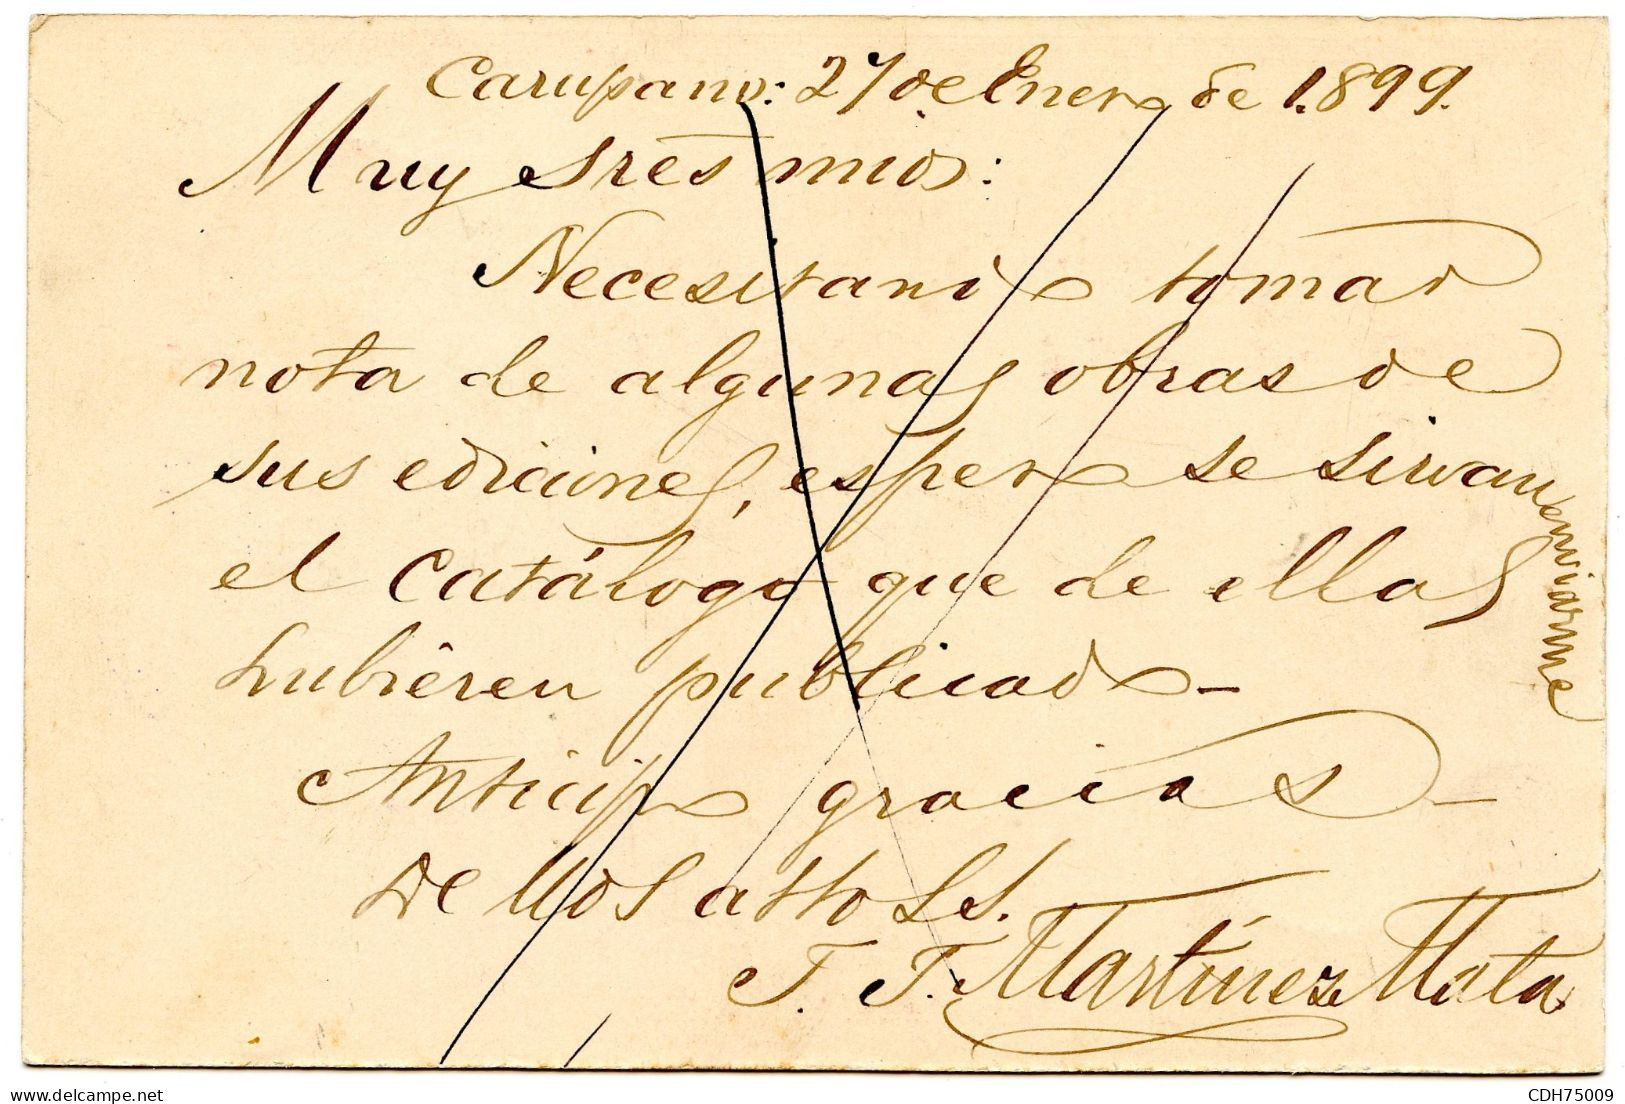 Carupano: 27 de Enero de 1.899.
Muy Sres mios:
Necesitando tomar
nota de algunas obras de
sus ediciones, espero se sirvan enviarme
el Catálogo que de ellas
hubiéren publicado —
Anticipo gracias —
De Uds atto S.S.
Martínez Mata
delcampe.net
CDH75009